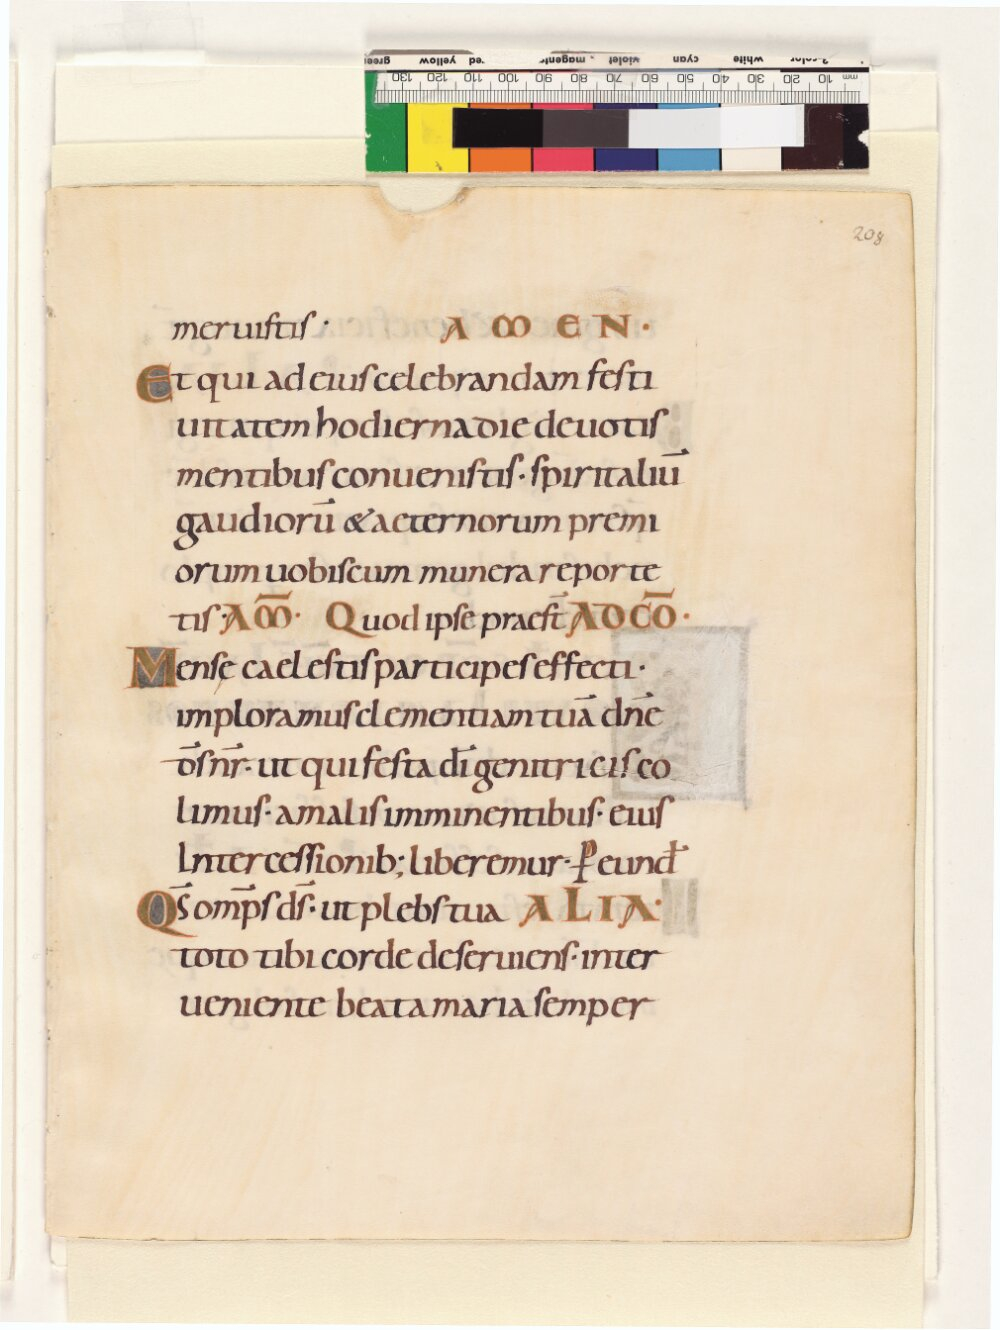 208
meruistis · AMEN·
Et qui ad eius celebrandam festi
uitatem hodierna die deuotis
mentibus conuenistis· spiritaliū
gaudiorū & aeternorum premi
orum uobiscum munera reporte
tis· AM̄· Quod ipse praest̄ AD CŌ·
Mense caelestis participes effecti·
imploramus clementiam tuā dn̄e
d̄s nr̄· ut qui festa dī genitricis co
limus· a malis imminentibus· eius
Intercessionib; liberemur· P eund̄
Q̄s om̄ps ds̄· ut plebs tua ALIA·
toto tibi corde deseruiens· inter
ueniente beata maria semper